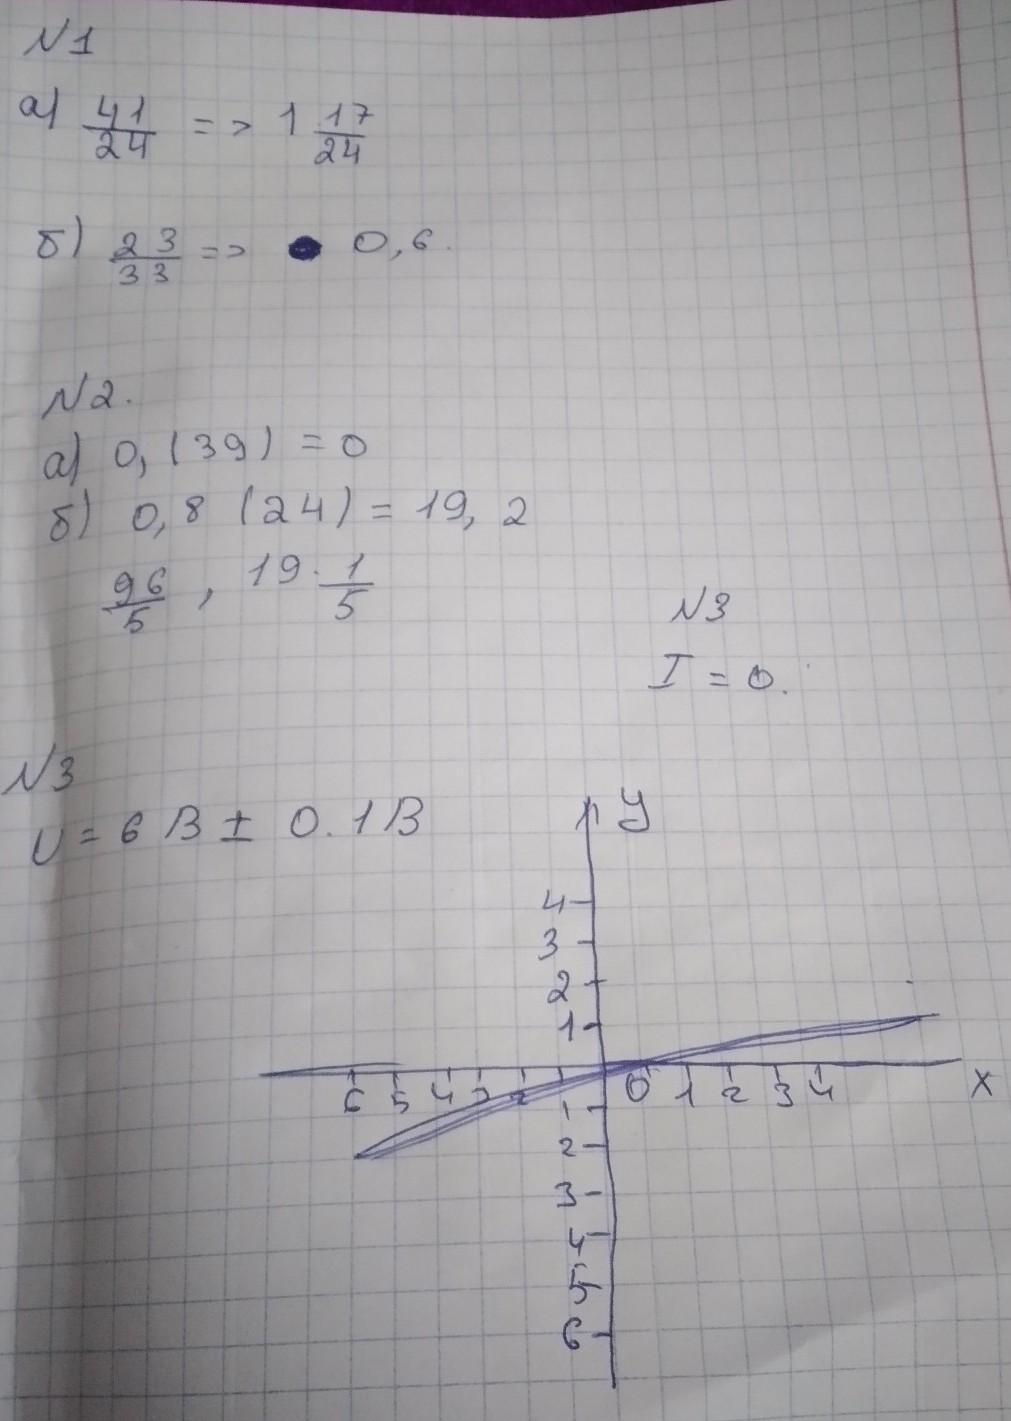 N1
а) 41/24 => 1 17/24
б) 23/33 => 0,6.
N2.
а) 0,(39) = 0
б) 0,8 (24) = 19, 2
96/5 , 19 · 1/5
N3
I = 0.
N3
U = 6 В ± 0.1В
У
4
3
2
1
6 5 4 3 2 0 1 2 3 4 X
1
2
3
4
5
6